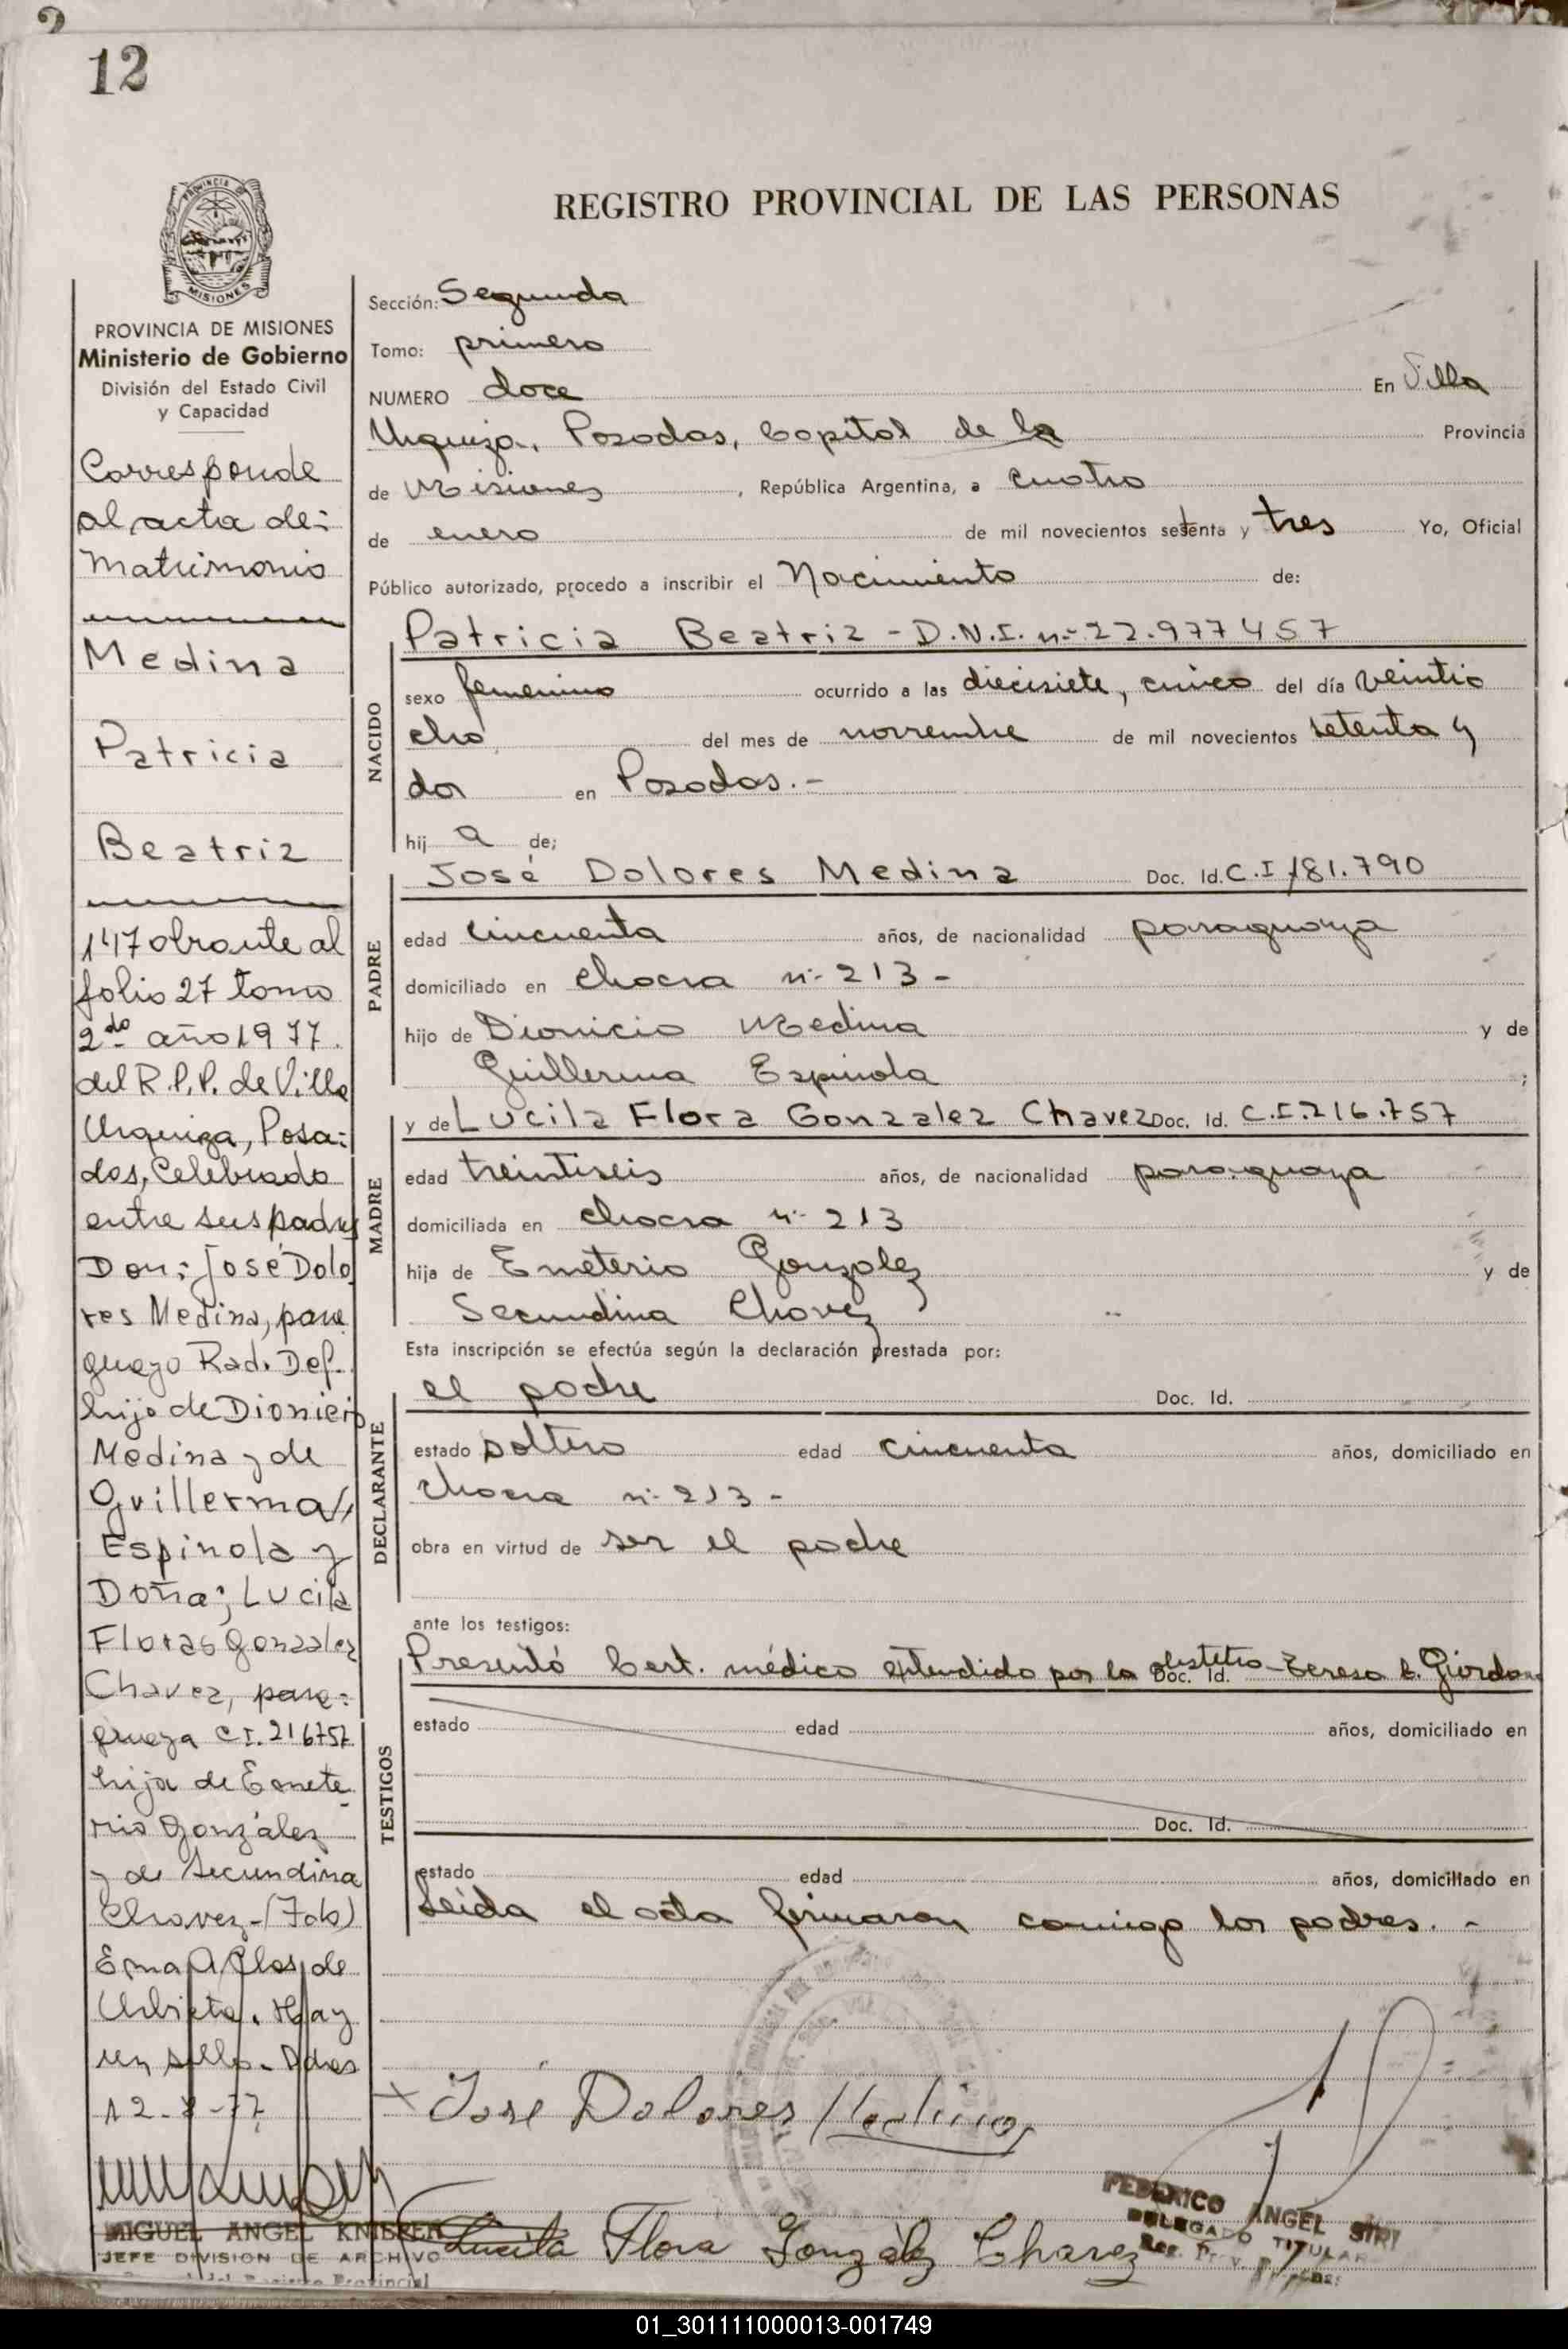 12
REGISTRO PROVINCIAL DE LAS PERSONAS
MISIONES
PROVINCIA DE MISIONES
Ministerio de Gobierno
División del Estado Civil
y Capacidad
Corresponde
al acta de:
Matrimonio
Medina
Patricia
Beatriz
147 obrante al
folio 27 tomo
2do año 1977.
del R.P.P. de Villa
Urquiza, Posa-
das, Celebrado
entre sus padres
Don: José Dolo
res Medina, para
guayo Rad. Def.
hijo de Dionicio
Medina y de
Guillerma
Espinola y
Doña; Lucila
Floras Gonzalez
Chavez, para-
guaya C.I. 216757
hija de Emete-
rio González
y de Secundina
Chavez-(Fdo)
Erma A. de
Urbieta. Hay
un sello. Pdas
12-8-77
MIGUEL ANGEL
JEFE DIVISION DE ARCHIVO
Registro Provincial
Sección: Segunda
Tomo: primero
NUMERO doce En Villa
Urquiza, Posadas, Capital de la Provincia
de Misiones, República Argentina, a cuatro
de enero de mil novecientos setenta y tres Yo, Oficial
Público autorizado, procedo a inscribir el Nacimiento de:
NACIDO
Patricia Beatriz - D.N.I. nº 22.977457
sexo femenino ocurrido a las diecisiete, cinco del día veintio
cho del mes de noviembre de mil novecientos setenta y
dos en Posadas.-
hij a de;
PADRE
José Dolores Medina Doc. Id. C.I 181.790
edad cincuenta años, de nacionalidad paraguaya
domiciliado en chacra nº 213 -
hijo de Dionicio Medina y de
Guillerma Espinola ;
MADRE
y de Lucila Flora Gonzalez Chavez Doc. Id. C.I.216.757
edad treintiseis años, de nacionalidad paraguaya
domiciliada en chacra nº 213
hija de Emeterio Gonzalez y de
Secundina Chavez
Esta inscripción se efectúa según la declaración prestada por:
DECLARANTE
el padre Doc. Id.
estado soltero edad cincuenta años, domiciliado en
chacra nº 213 -
obra en virtud de ser el padre
ante los testigos:
TESTIGOS
Presentó Cert. médico extendido por la obstetra Teresa Doc. Id. Giordano
estado edad años, domiciliado en
Doc. Id.
estado edad años, domiciliado en
Leida el acta firmaron conmigo los padres. -
José Dolores Medina
Lucila Flora González Chavez
FEDERICO ANGEL SIRI
DELEGADO TITULAR
01_301111000013-001749